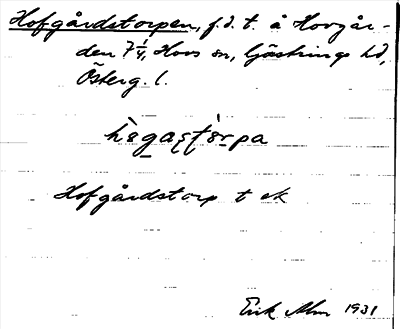 Hofgårdstorpen, f.d. t. å Hovgår-
den 7 1/4, Hovs sn, Göstrings hd,
Österg. l.
Hofgårdstorp t ek
Erik Alm 1931